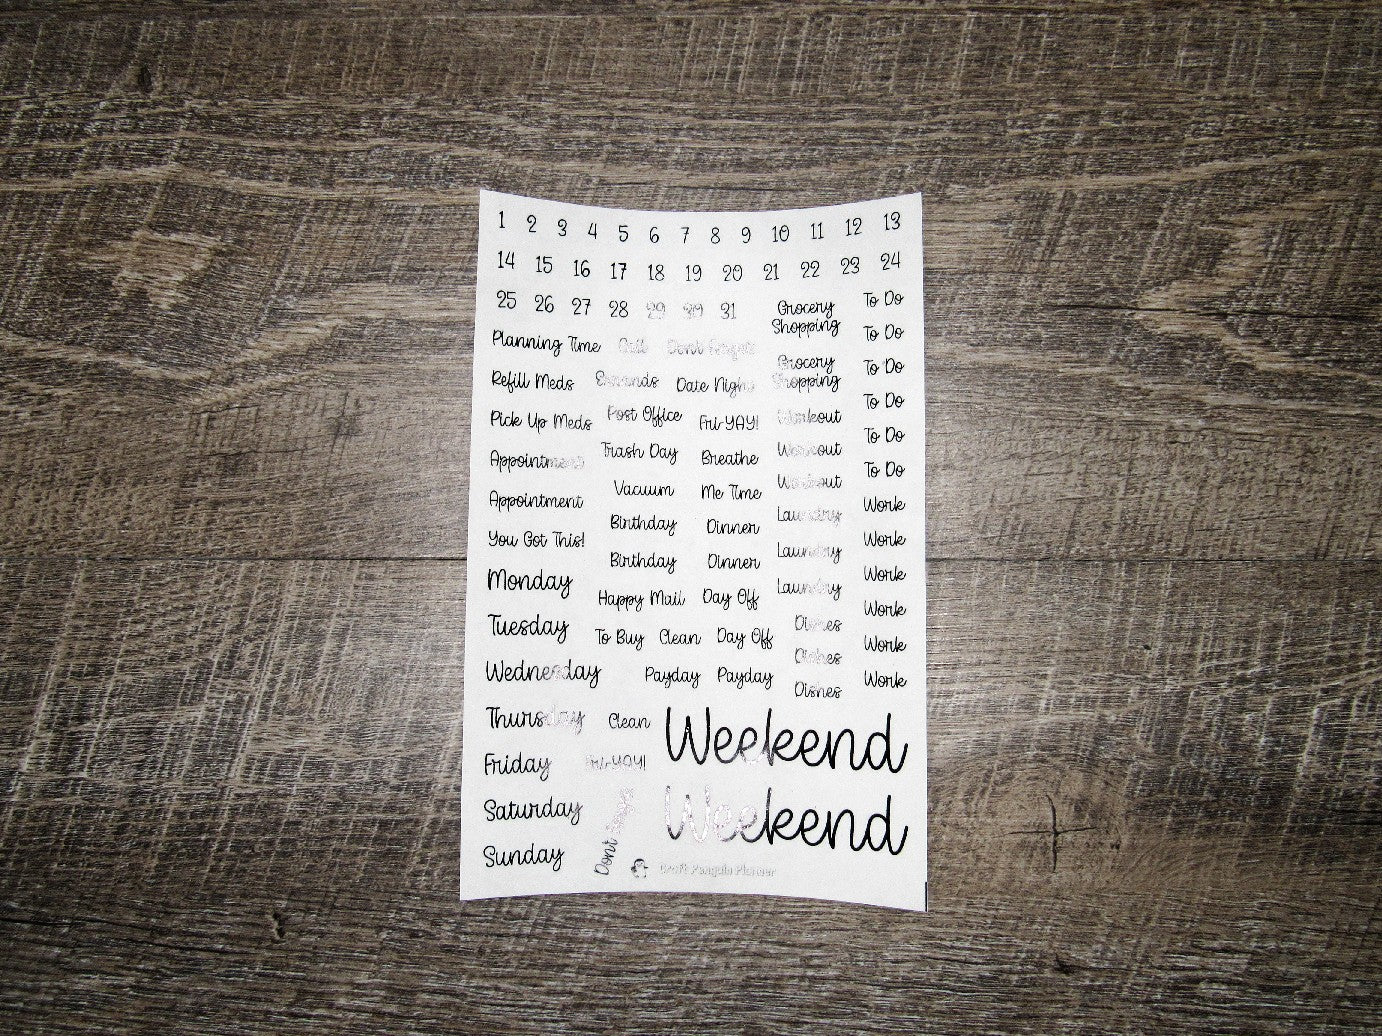 1 2 3 4 5 6 7 8 9 10 11 12 13
14 15 16 17 18 19 20 21 22 23 24
25 26 27 28 29 30 31
Grocery
Shopping
To Do
To Do
Planning Time Call Don't Forget
Grocery
Shopping
To Do
Refill Meds Errands Date Night
To Do
Pick Up Meds Post Office Fri-YAY! Workout
To Do
Appointment Trash Day Breathe Workout
To Do
Appointment Vacuum Me Time Workout
Work
Birthday Dinner Laundry
You Got This!
Work
Birthday Dinner Laundry
Monday
Work
Happy Mail Day Off Laundry
Work
Tuesday To Buy Clean Day Off Dishes
Work
Wednesday Payday Payday Dishes
Work
Dishes
Thursday Clean Weekend
Friday Fri-YAY!
Saturday Weekend
Sunday Don't Forget
Craft Penguin Planner